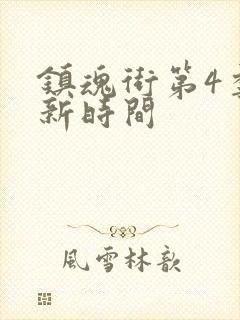 鎮魂街第4季
新時間
風雪林歆